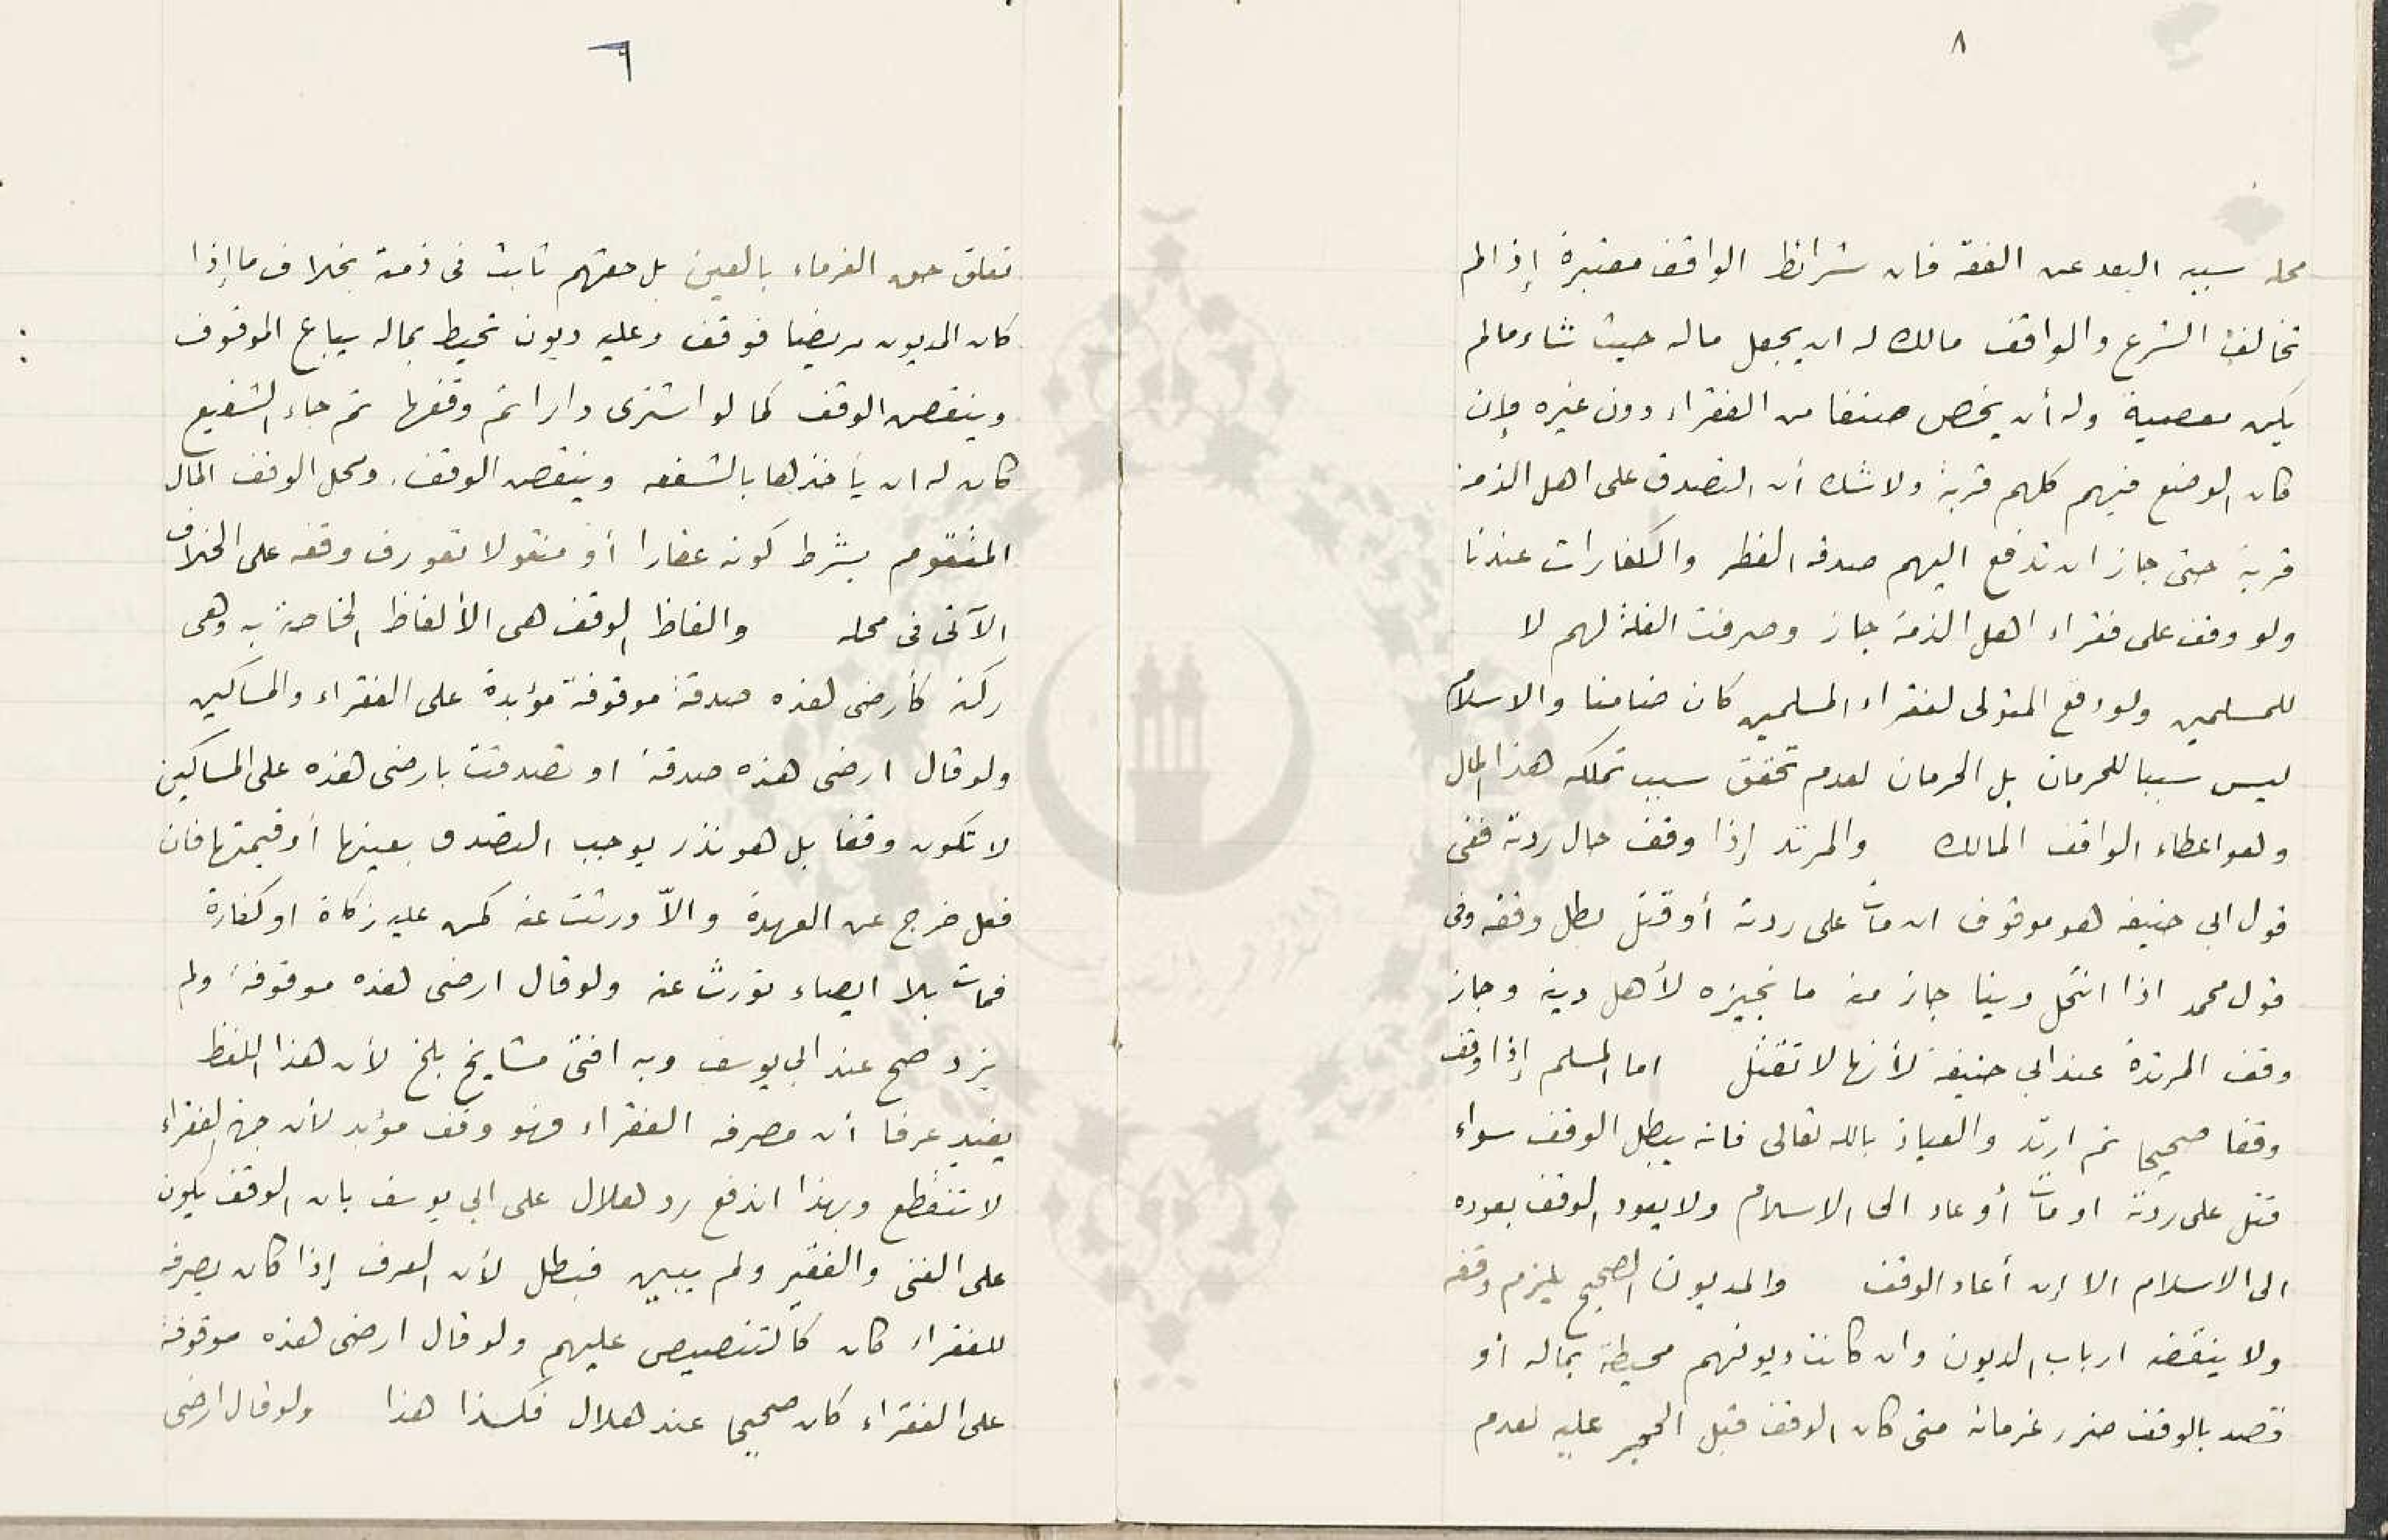 ٨
محله سببه البعد عن الفقه فان شرائط الواقف معتبرة إذا لم
تخالف الشرع والواقف مالك له ان يجعل ماله حيث شاء مالم
يكن معصية وله أن يخص صنفا من الفقراء دون غيره وإن
كان الوضع فيهم كلهم قربة ولا شك أن التصدق على اهل الذمة
قربة حتى جاز ان تدفع اليهم صدقة الفطر والكفارات عندنا
ولو وقف على فقراء اهل الذمة جاز وصرفت الغلة لهم لا
للمسلمين ولو دفع المتولى لفقراء المسلمين كان ضامنا والاسلام
ليس سببا للحرمان بل الحرمان لعدم تحقق سبب تملكه هذا المال
وهو اعطاء الواقف المالك والمرتد إذا وقف حال ردته ففى
قول ابى حنيفه هو موقوف ان مات على ردته أو قتل بطل وقفه وفى
قول محمد اذا انتحل دينا جاز منه ما نجيزه لأهل دينه وجاز
وقف المرتدة عند ابى حنيفة لأنها لا تقتل اما المسلم إذا وقف
وقفا صحيحا ثم ارتد والعياذ بالله تعالى فانه يبطل الوقف سواء
قتل على ردته او مات أو عاد الى الاسلام ولا يعود الوقف بعوده
الى الاسلام الا إن أعاد الوقف والمديون الصحيح يلزم وقفه
ولا ينقضه ارباب الديون وان كانت ديونهم محيطة بماله أو
قصد بالوقف ضرر غرمائه متى كان الوقف قبل الحجر عليه لعدم
٩
تعلق حق الغرماء بالعين بل حقهم ثابت فى ذمته بخلاف ما إذا
كان المديون مريضا فوقف وعليه ديون تحيط بماله يباع الموقوف
وينقض الوقف كما لو اشترى دارا ثم وقفها ثم جاء الشفيع
كان له ان يأخذها بالشفعه وينقض الوقف. ومحل الوقف المال
المتقوم بشرط كونه عقارا أو منقولا تعورف وقفه على الخلاف
الآتى فى محله والفاظ الوقف هى الألفاظ الخاصة به وهى
ركنه كأرضى هذه صدقة موقوفة مؤبدة على الفقراء والمساكين
ولو قال ارضى هذه صدقة او تصدقت بارضى هذه على المساكين
لا تكون وقفا بل هو نذر يوجب التصدق بعينها أو قيمتها فان
فعل خرج عن العهدة والاّ ورثت عنه كمن عليه زكاة او كفارة
فمات بلا ايصاء تورث عنه ولو قال ارضى هذه موقوفة ولم
يزد صح عند ابى يوسف وبه افتى مشايخ بلخ لأن هذا اللفظ
يفيد عرفا أن مصرفه الفقراء فهو وقف مؤبد لأن جهة الفقراء
لا تنقطع وبهذا اندفع رد هلال على ابى يوسف بان الوقف يكون
على الغنى والفقير ولم يبين فبطل لأن العرف إذا كان يصرفه
للفقراء كان كالتنصيص عليهم ولو قال ارضى هذه موقوفة
على الفقراء كان صحيحا عند هلال فكذا هذا ولو قال ارضى